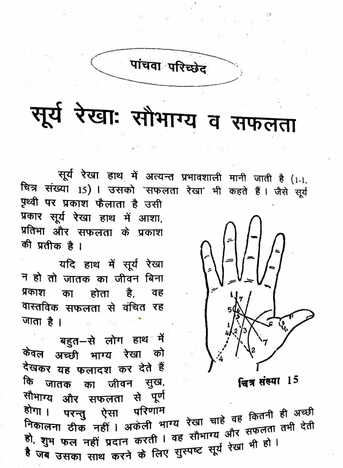 पांचवा परिच्छेद
सूर्य रेखाः सौभाग्य व सफलता
सूर्य रेखा हाथ में अत्यन्त प्रभावशाली मानी जाती है (1-1,
चित्र संख्या 15) । उसको 'सफलता रेखा' भी कहते हैं । जैसे सूर्य
पृथ्वी पर प्रकाश फैलाता है उसी
प्रकार सूर्य रेखा हाथ में आशा,
प्रतिभा और सफलता के प्रकाश
की प्रतीक है ।
यदि हाथ में सूर्य रेखा
न हो तो जातक का जीवन बिना
प्रकाश का होता है, वह
वास्तविक सफलता से वंचित रह
जाता है ।
बहुत-से लोग हाथ में
केवल अच्छी भाग्य रेखा को
देखकर यह फलादश कर देते हैं
कि जातक का जीवन सुख,
सौभाग्य और सफलता से पूर्ण
होगा । परन्तु ऐसा परिणाम
चित्र संख्या 15
निकालना ठीक नहीं । अकेली भाग्य रेखा चाहे वह कितनी ही अच्छी
हो, शुभ फल नहीं प्रदान करती । वह सौभाग्य और सफलता तभी देती
है जब उसका साथ करने के लिए सुस्पष्ट सूर्य रेखा भी हो ।